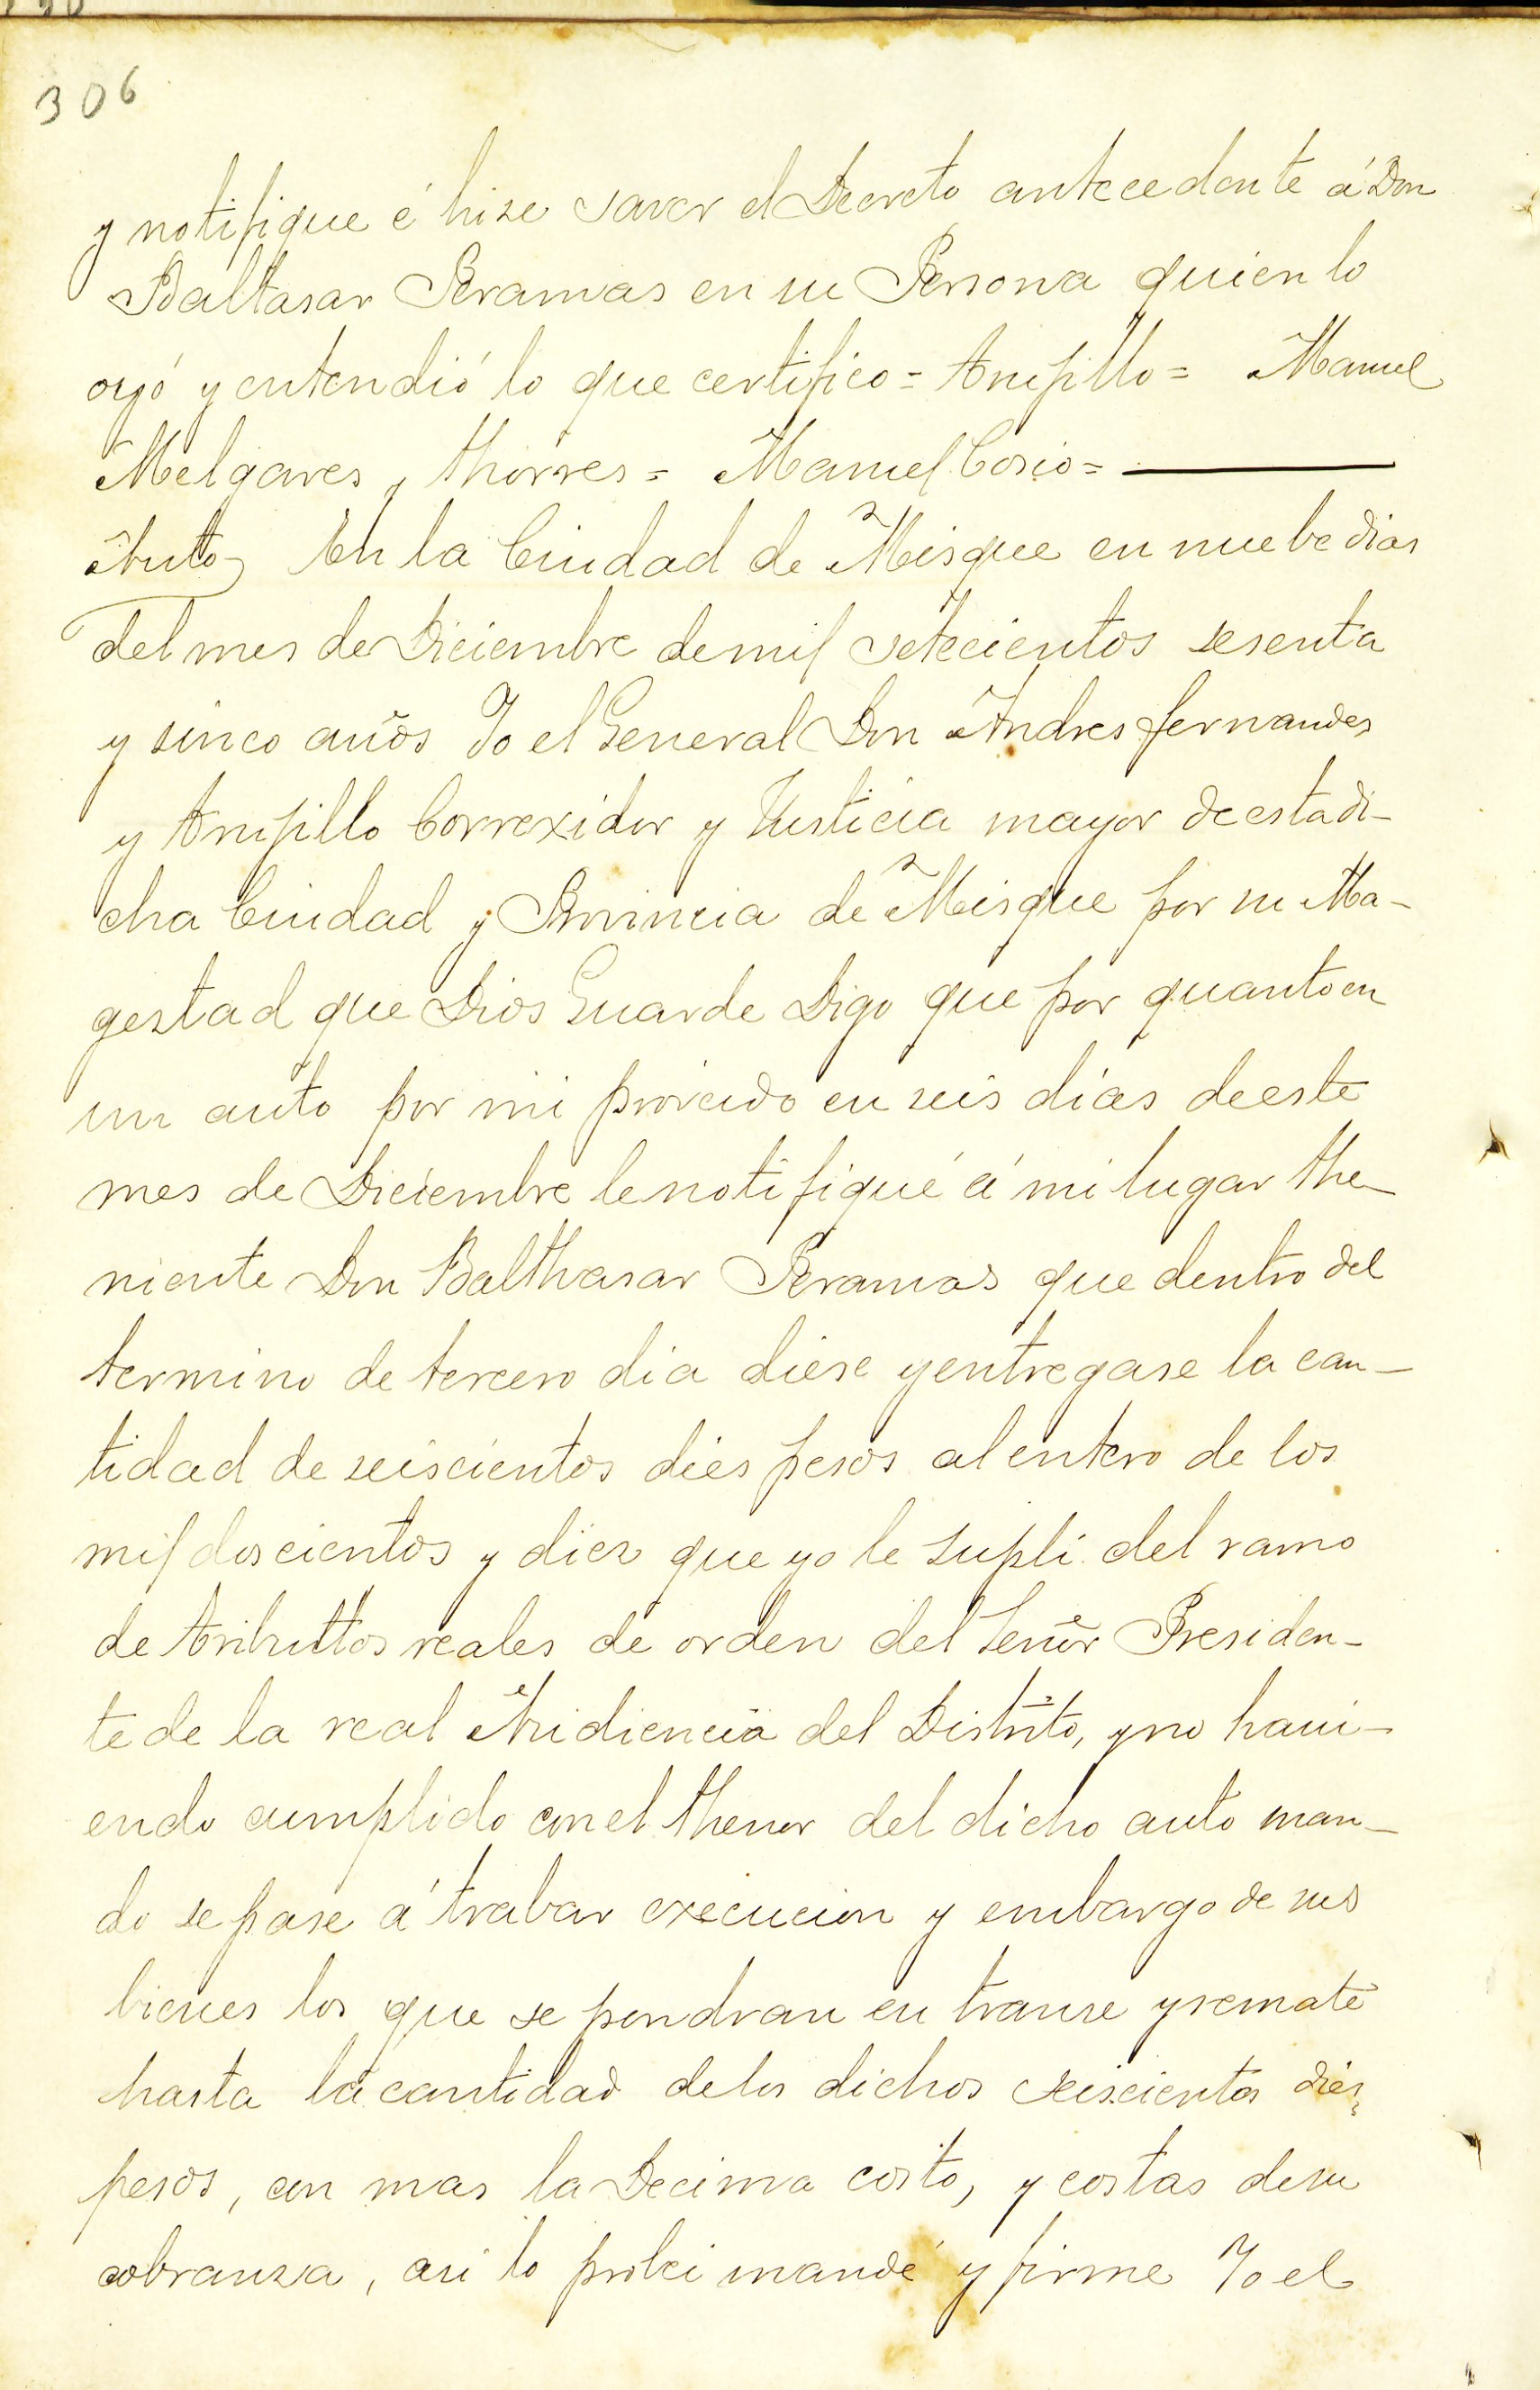 306
y notifique é hize saver el Decreto antecedente á Don
Baltasar Peramas en su Persona quien lo
oyó y entendió lo que certifico = Trujillo = Manuel
Melgares y thorres = Manuel Cosio =
Auto En la Ciudad de Misque en nuebe dias
del mes de Diciembre de mil setecientos sesenta
y sinco años Yo el General Don Andres fernandes
y Trujillo Correxidor y Justicia mayor de esta di-
cha Ciudad y Provincia de Misque por su Ma-
gestad que Dios Guarde Digo que por quanto en
un auto por mi proveido en seis dias de este
mes de Diciembre le notifiqué á mi lugar the-
niente Don Balthasar Peramas que dentro del
termino de tercero dia diese y entregase la can-
tidad de seiscientos dies pesos al entero de los
mil doscientos y diez que yo le supli del ramo
de tributtos reales de orden del Señor Presiden-
te de la real Audiencia del Distrito, y no havi-
endo cumplido con el thenor del dicho auto man-
do se pase á trabar execucion y embargo de sus
bienes los que se pondran en transe y remate
hasta la cantidad de los dichos seiscientos dies
pesos, con mas la Decima costo, y costas de su
cobranza, asi lo probei mandé y firme Yo el